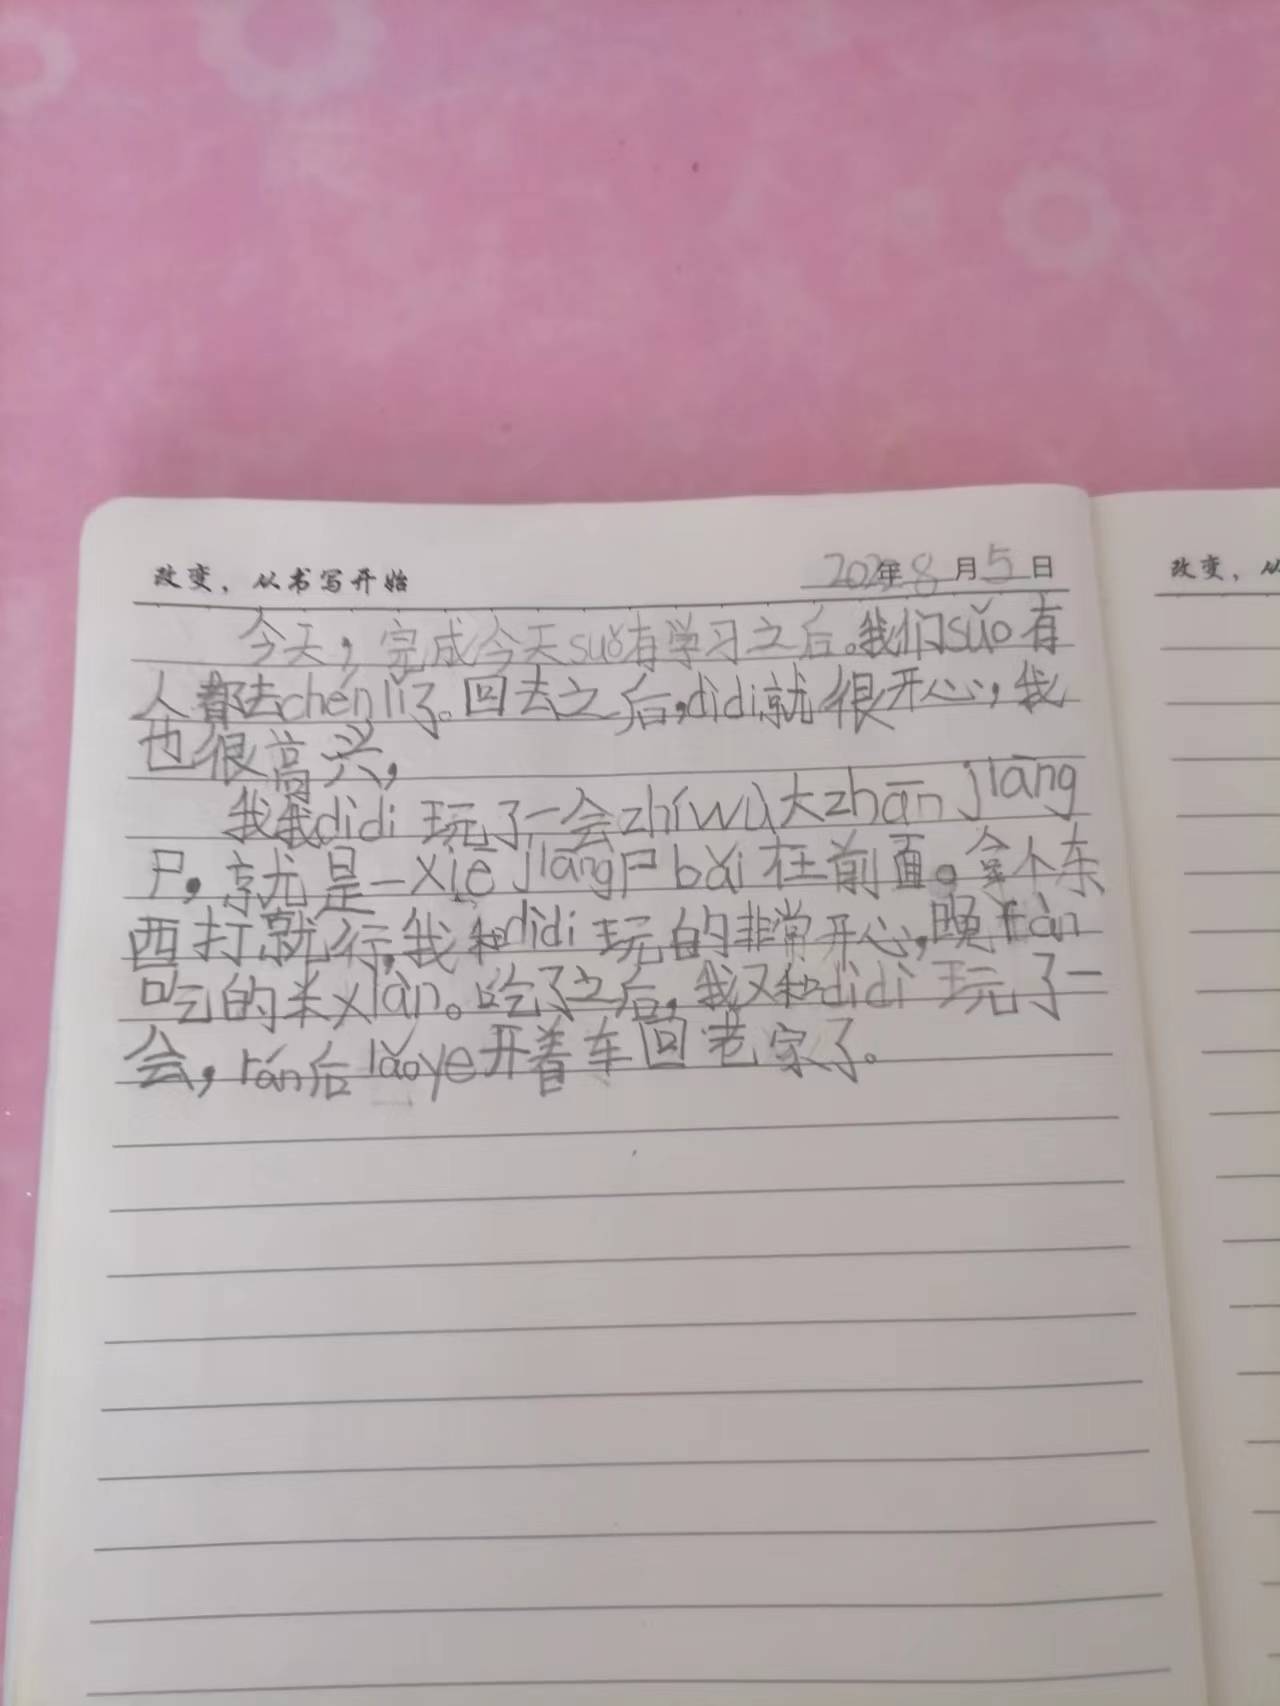 改变，从书写开始
202年8月5日
改变，从
今天，完成今天suǒ有学习之后。我们suǒ有
人都去chén li了。回去之后，dìdi就很开心，我
也很高兴，
我我didi玩了一会zhíwù大zhān jiāng
尸，就是一xiē jiāng尸bǎi在前面。拿个东
西打就行，我和dìdi玩的非常开心，晚fàn
吃的米xiàn。吃了之后，我又和didi玩了一
会，rán后lǎoye开着车回老家了。